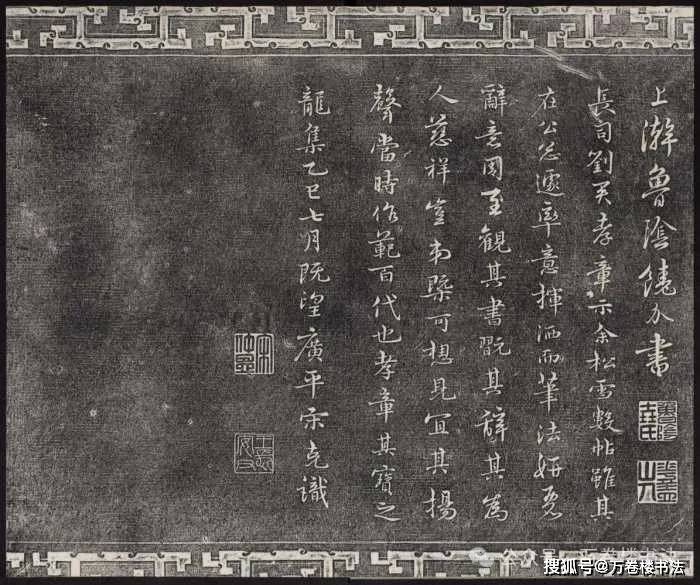 上澣魯陰饒介書
長司劉君孝章示余松雪數帖雖其
在公怱遽率意揮洒而筆法妍
辭意周至觀其書翫其辭其為
人慈祥豈弟槩可想見宜其揚
聲當時作範百代也孝章其寶之
龍集乙巳七月既望廣平宋克識
搜狐号@万卷楼书法